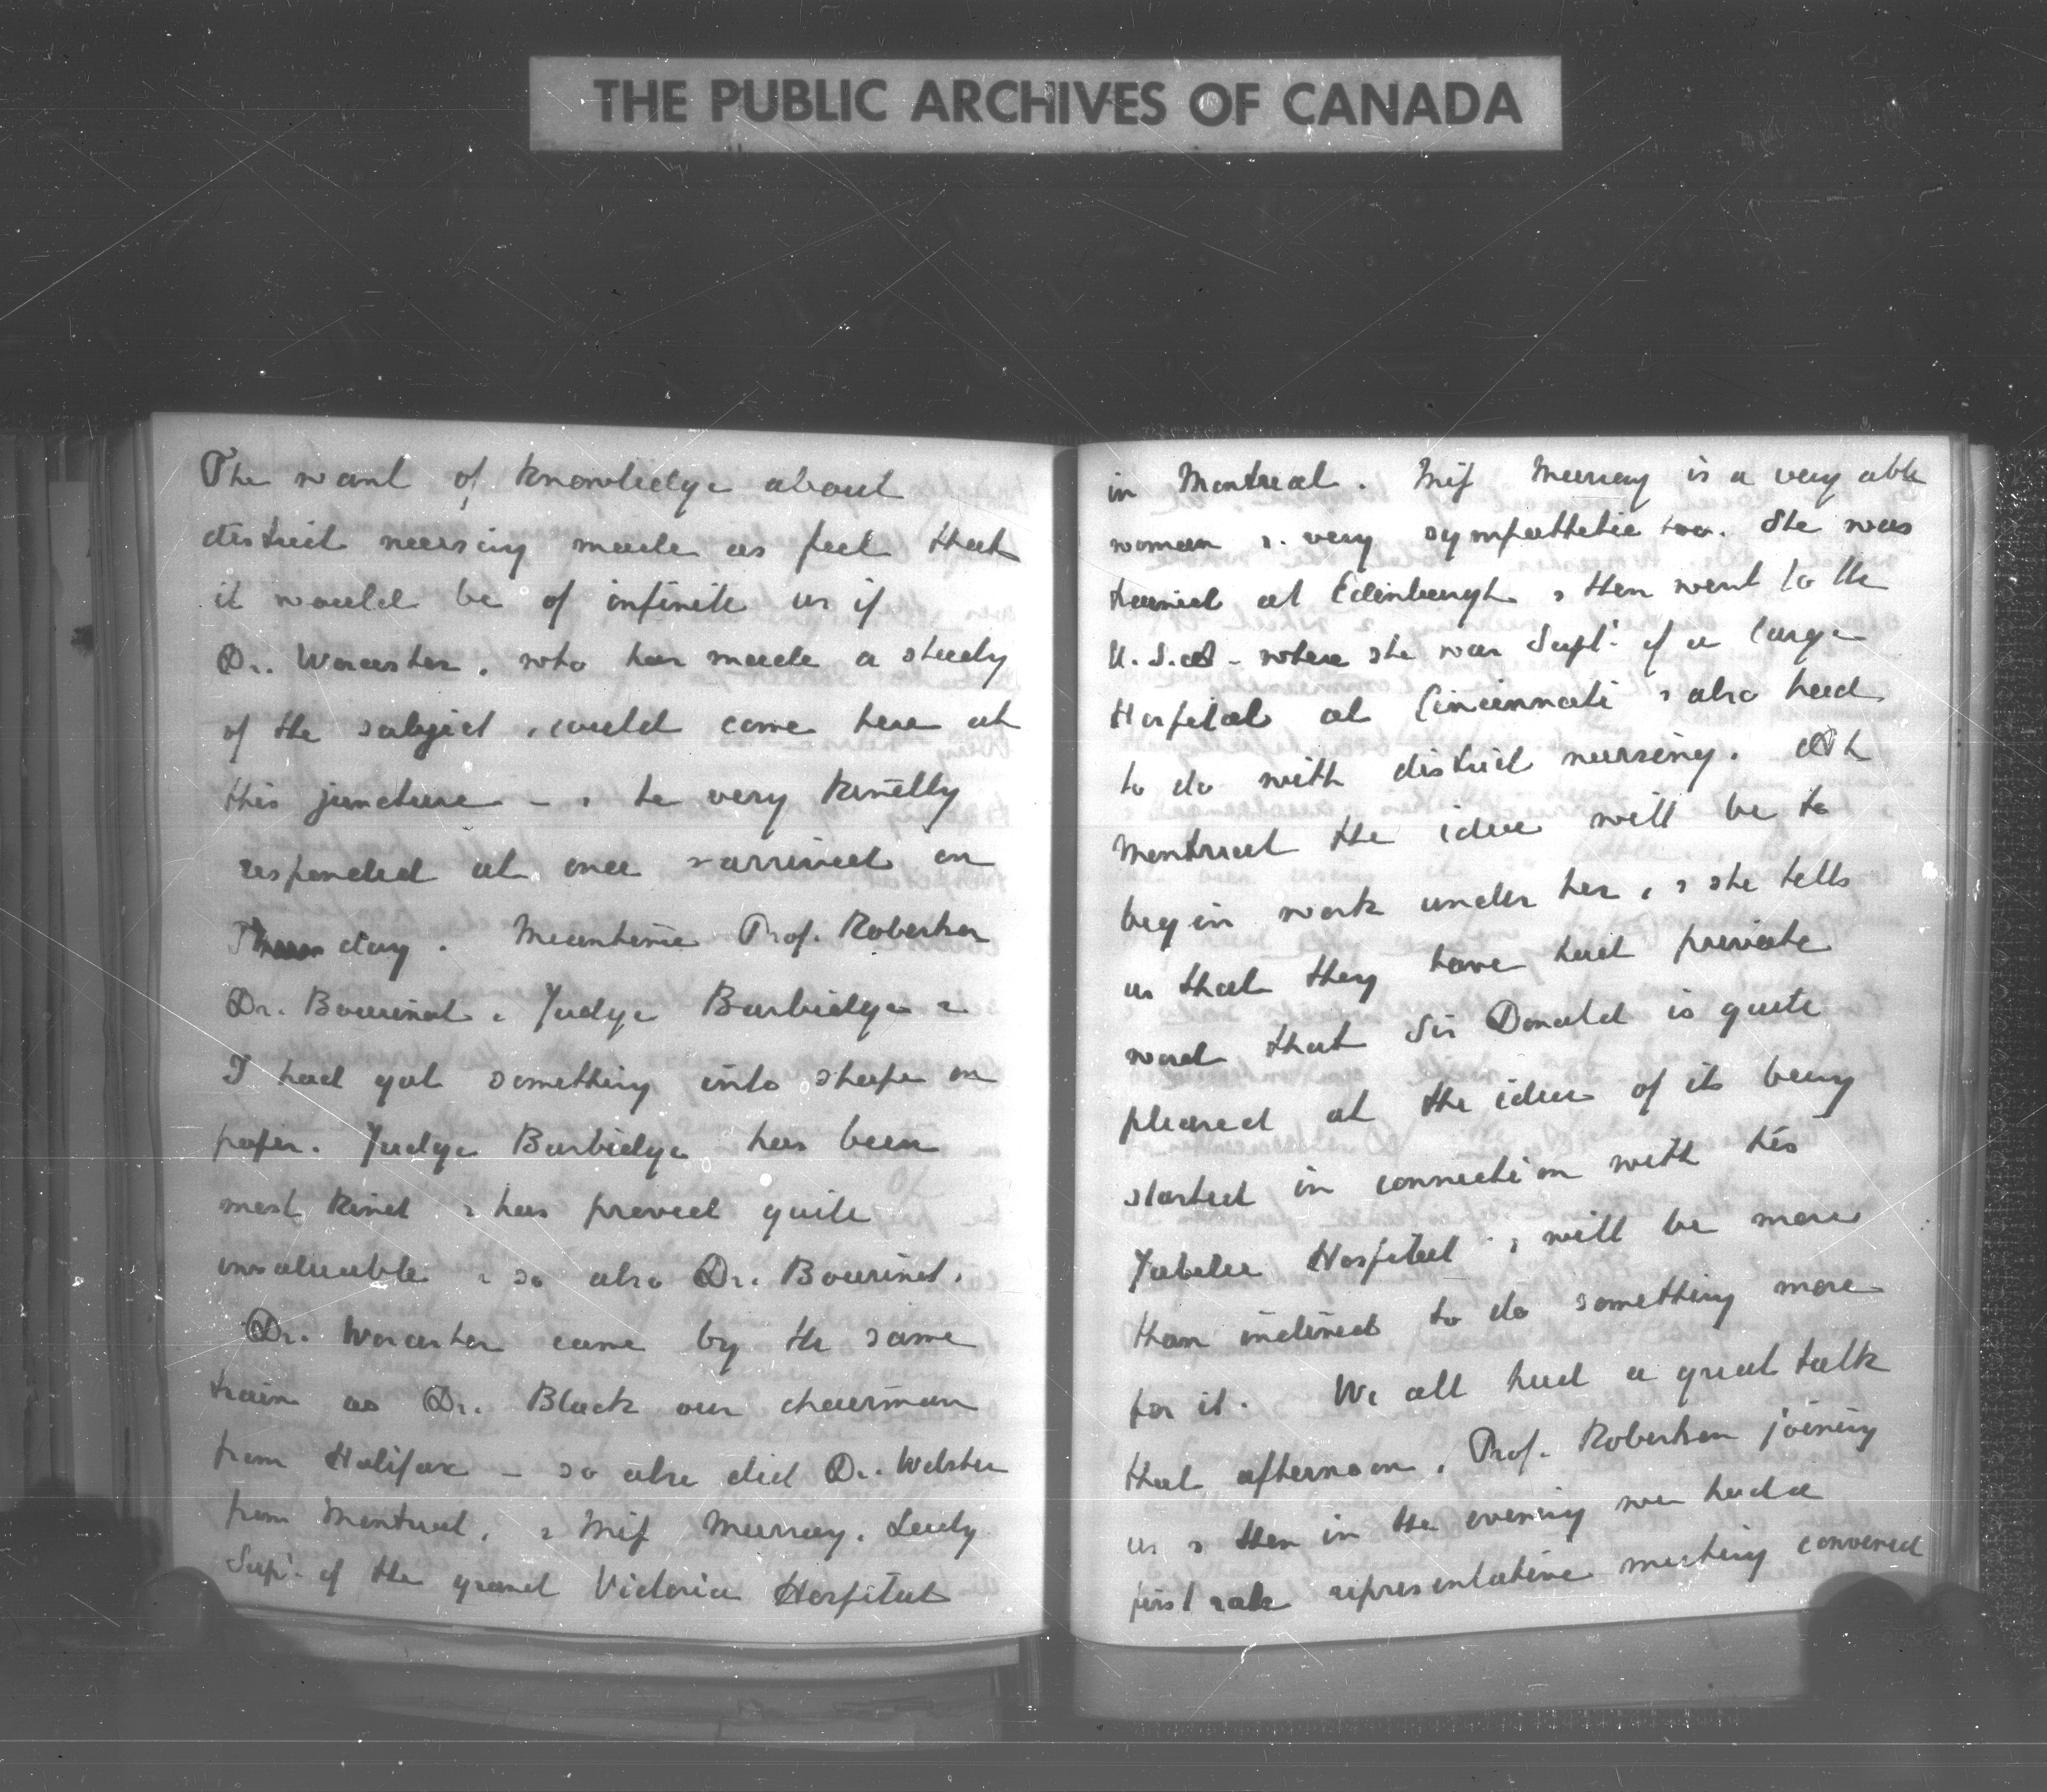 THE PUBLIC ARCHIVES OF CANADA
The want of knowledge about
district nursing made us feel that
it would be of infinite us if
Dr. Worcester, who has made a study
of the subject, could come here at
this juncture - & he very kindly
responded at once & arrived on
Thursday. Meantime Prof. Robertson
Dr. Bourinot, Judge Burbidge &
I had got something into shape on
paper. Judge Burbidge has been
most kind & has proved quite
invaluable & so also Dr. Bourinot.
Dr. Worcester came by the same
train as Dr. Black our chairman
from Halifax - so also did Dr. Webster
from Montreal, & Miss Murray, Lady
Supt. of the grand Victoria Hospital
in Montreal. Miss Murray is a very able
woman & very sympathetic too. She was
trained at Edinburgh & then went to the
U.S.A - where she was Supt. of a large
Hospital at Cincinnati & also had
to do with district nursing. At
Montreal the idea will be to
begin work under her, & she tells
us that they have had private
word that Sir Donald is quite
pleased at the idea of its being
started in connection with his
Jubilee Hospital & will be more
than inclined to do something more
for it. We all had a great talk
that afternoon, Prof. Robertson joining
us & then in the evening we had a
first rate representative meeting convened